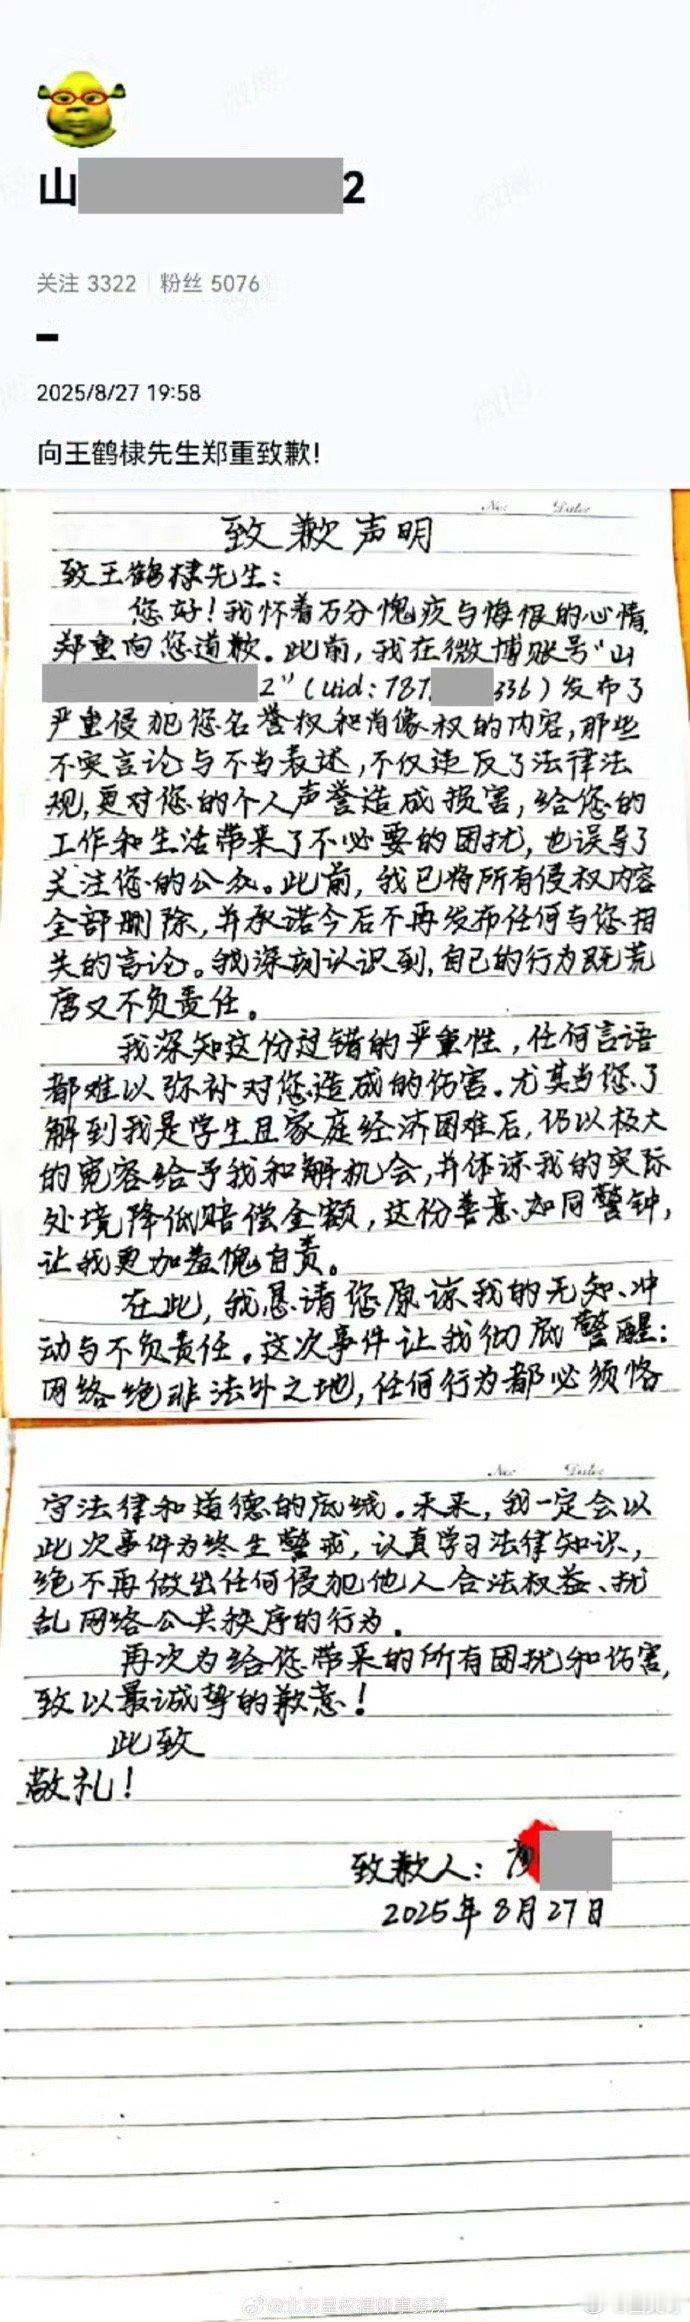 山
2
关注 3322 | 粉丝 5076
2025/8/27 19:58
向王鹤棣先生郑重致歉!
No.
Date
致歉声明
致王鹤棣先生:
您好!我怀着万分愧疚与悔恨的心情,
郑重向您道歉。此前,我在微博账号“山
2”(uid:787 336)发布了
严重侵犯您名誉权和肖像权的内容,那些
不实言论与不当表述,不仅违反了法律法
规,更对您的个人声誉造成损害,给您的
工作和生活带来了不必要的困扰,也误导了
关注您的公众。此前,我已将所有侵权内容
全部删除,并承诺今后不再发布任何与您相
关的言论。我深刻认识到,自己的行为既荒
唐又不负责任。
我深知这份过错的严重性,任何言语
都难以弥补对您造成的伤害。尤其当您了
解到我是学生且家庭经济困难后,仍以极大
的宽容给予我和解机会,并体谅我的实际
处境降低赔偿金额,这份善意如同警钟,
让我更加羞愧自责。
在此,我恳请您原谅我的无知、冲
动与不负责任。这次事件让我彻底警醒:
网络绝非法外之地,任何行为都必须恪
No.
Date
守法律和道德的底线。未来,我一定会以
此次事件为终生警戒,认真学习法律知识,
绝不再做出任何侵犯他人合法权益、扰
乱网络公共秩序的行为。
再次为给您带来的所有困扰和伤害,
致以最诚挚的歉意!
此致
敬礼!
致歉人:
2025年8月27日
@北京星权律师事务所